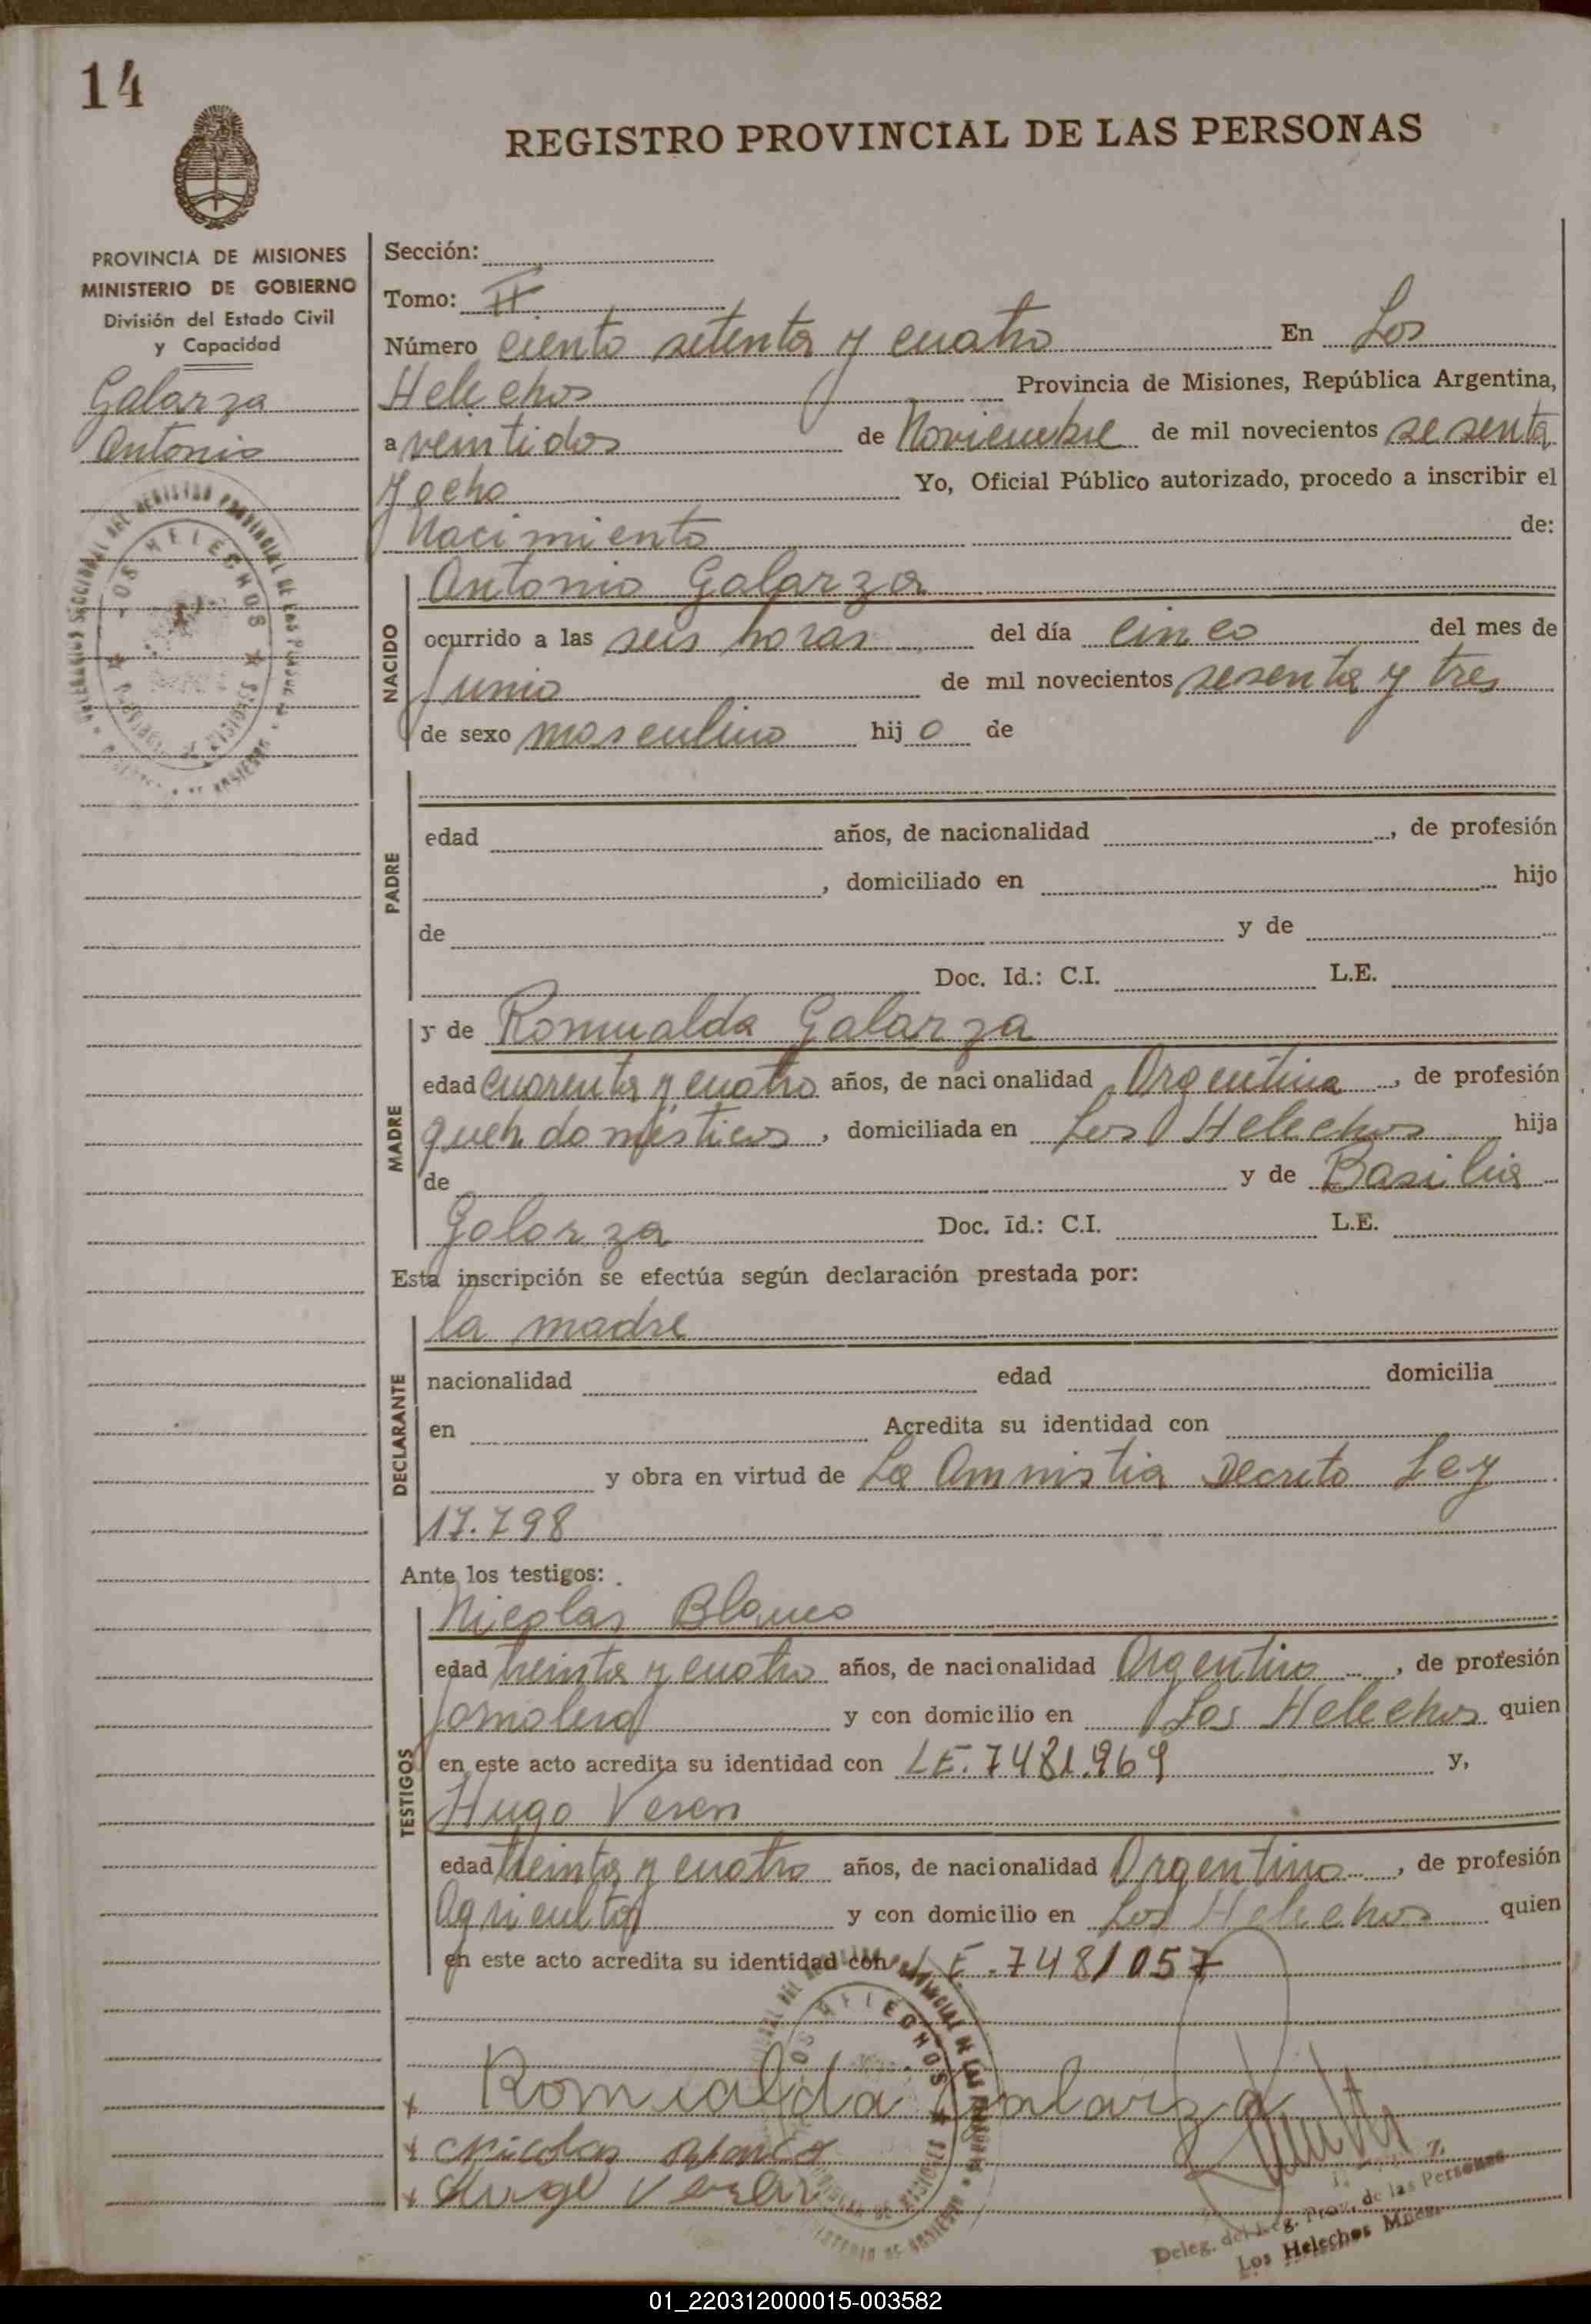 14
REGISTRO PROVINCIAL DE LAS PERSONAS
PROVINCIA DE MISIONES
MINISTERIO DE GOBIERNO
División del Estado Civil
y Capacidad
Galarza
Antonio
Sección:
Tomo: II
Número ciento setenta y cuatro En Los
Helechos Provincia de Misiones, República Argentina,
a veintidos de Noviembre de mil novecientos sesenta
y ocho Yo, Oficial Público autorizado, procedo a inscribir el
Nacimiento de:
NACIDO
Antonio Galarza
ocurrido a las seis horas del día cinco del mes de
Junio de mil novecientos sesenta y tres
de sexo masculino hij o de
PADRE
edad años, de nacionalidad , de profesión
, domiciliado en hijo
de y de
Doc. Id.: C.I. L.E.
MADRE
y de Romualda Galarza
edad cuarenta y cuatro años, de nacionalidad Argentina , de profesión
queh. domésticos , domiciliada en Los Helechos hija
de y de Basilia
Galarza Doc. Id.: C.I. L.E.
Esta inscripción se efectúa según declaración prestada por:
DECLARANTE
la madre
nacionalidad edad domicilia
en Acredita su identidad con
y obra en virtud de La Amnistia Decreto Ley
17.798
Ante los testigos:
TESTIGOS
Nicolas Blanco
edad treinta y cuatro años, de nacionalidad Argentino , de profesión
Jornalero y con domicilio en Los Helechos quien
en este acto acredita su identidad con L.E. 7481.969 y,
Hugo Veren
edad treinta y cuatro años, de nacionalidad Argentino , de profesión
Agricultor y con domicilio en Los Helechos quien
en este acto acredita su identidad con L.E. 7481057
x Romualda Galarza
x Nicolas Blanco
x Hugo
Deleg. del Reg. Prov. de las Personas
Los Helechos Mnes.
01_220312000015-003582